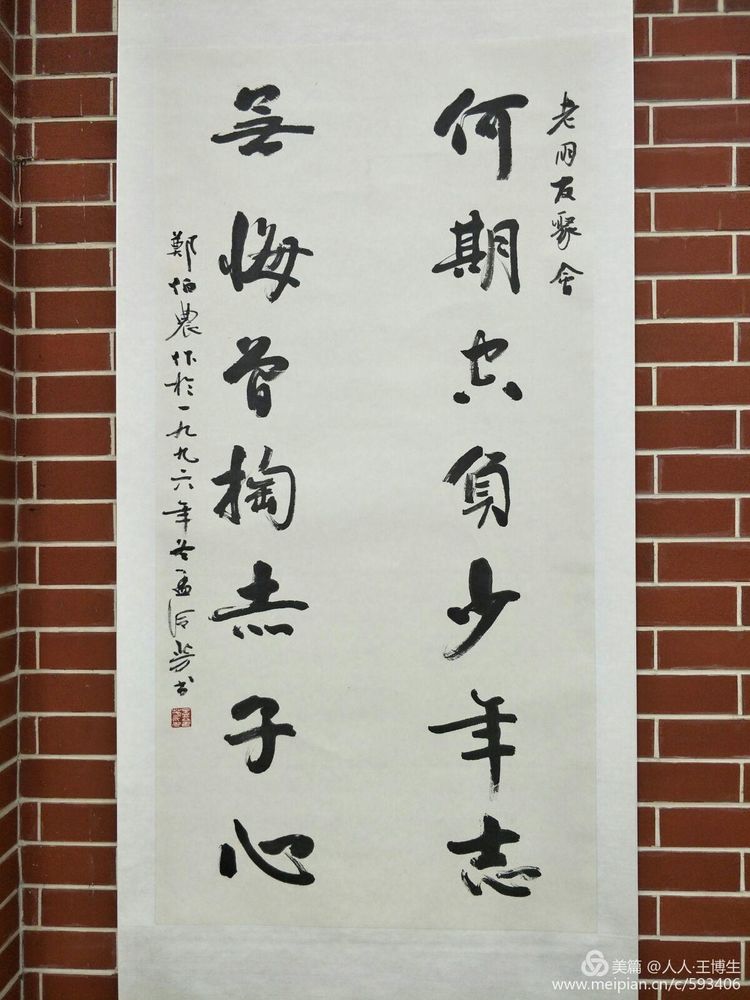 老朋友聚会
何期空负少年志
無悔曾掏赤子心
鄭伯農作於一九九六年冬孟
美篇 @人人·王博生
www.meipian.cn/c/593406